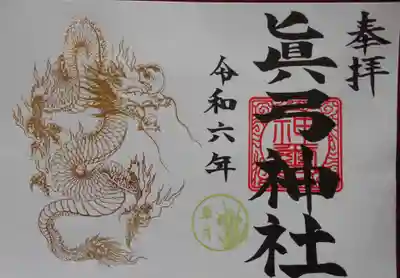 奉拝
眞弓神社
令和六年